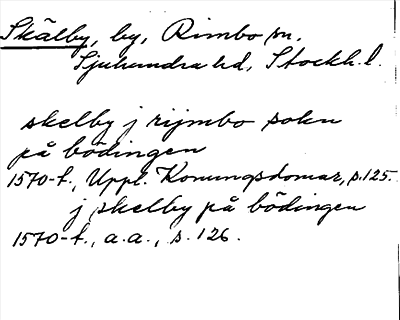 Skälby, by, Rimbo sn.
Sjuhundra hd, Stockh. l.
skelby j rijmbo sokn
på bödingen
1570-t., Uppl. Konungsdomar, s. 125.
j skelby på bödingen
1570-t., a.a., s. 126.